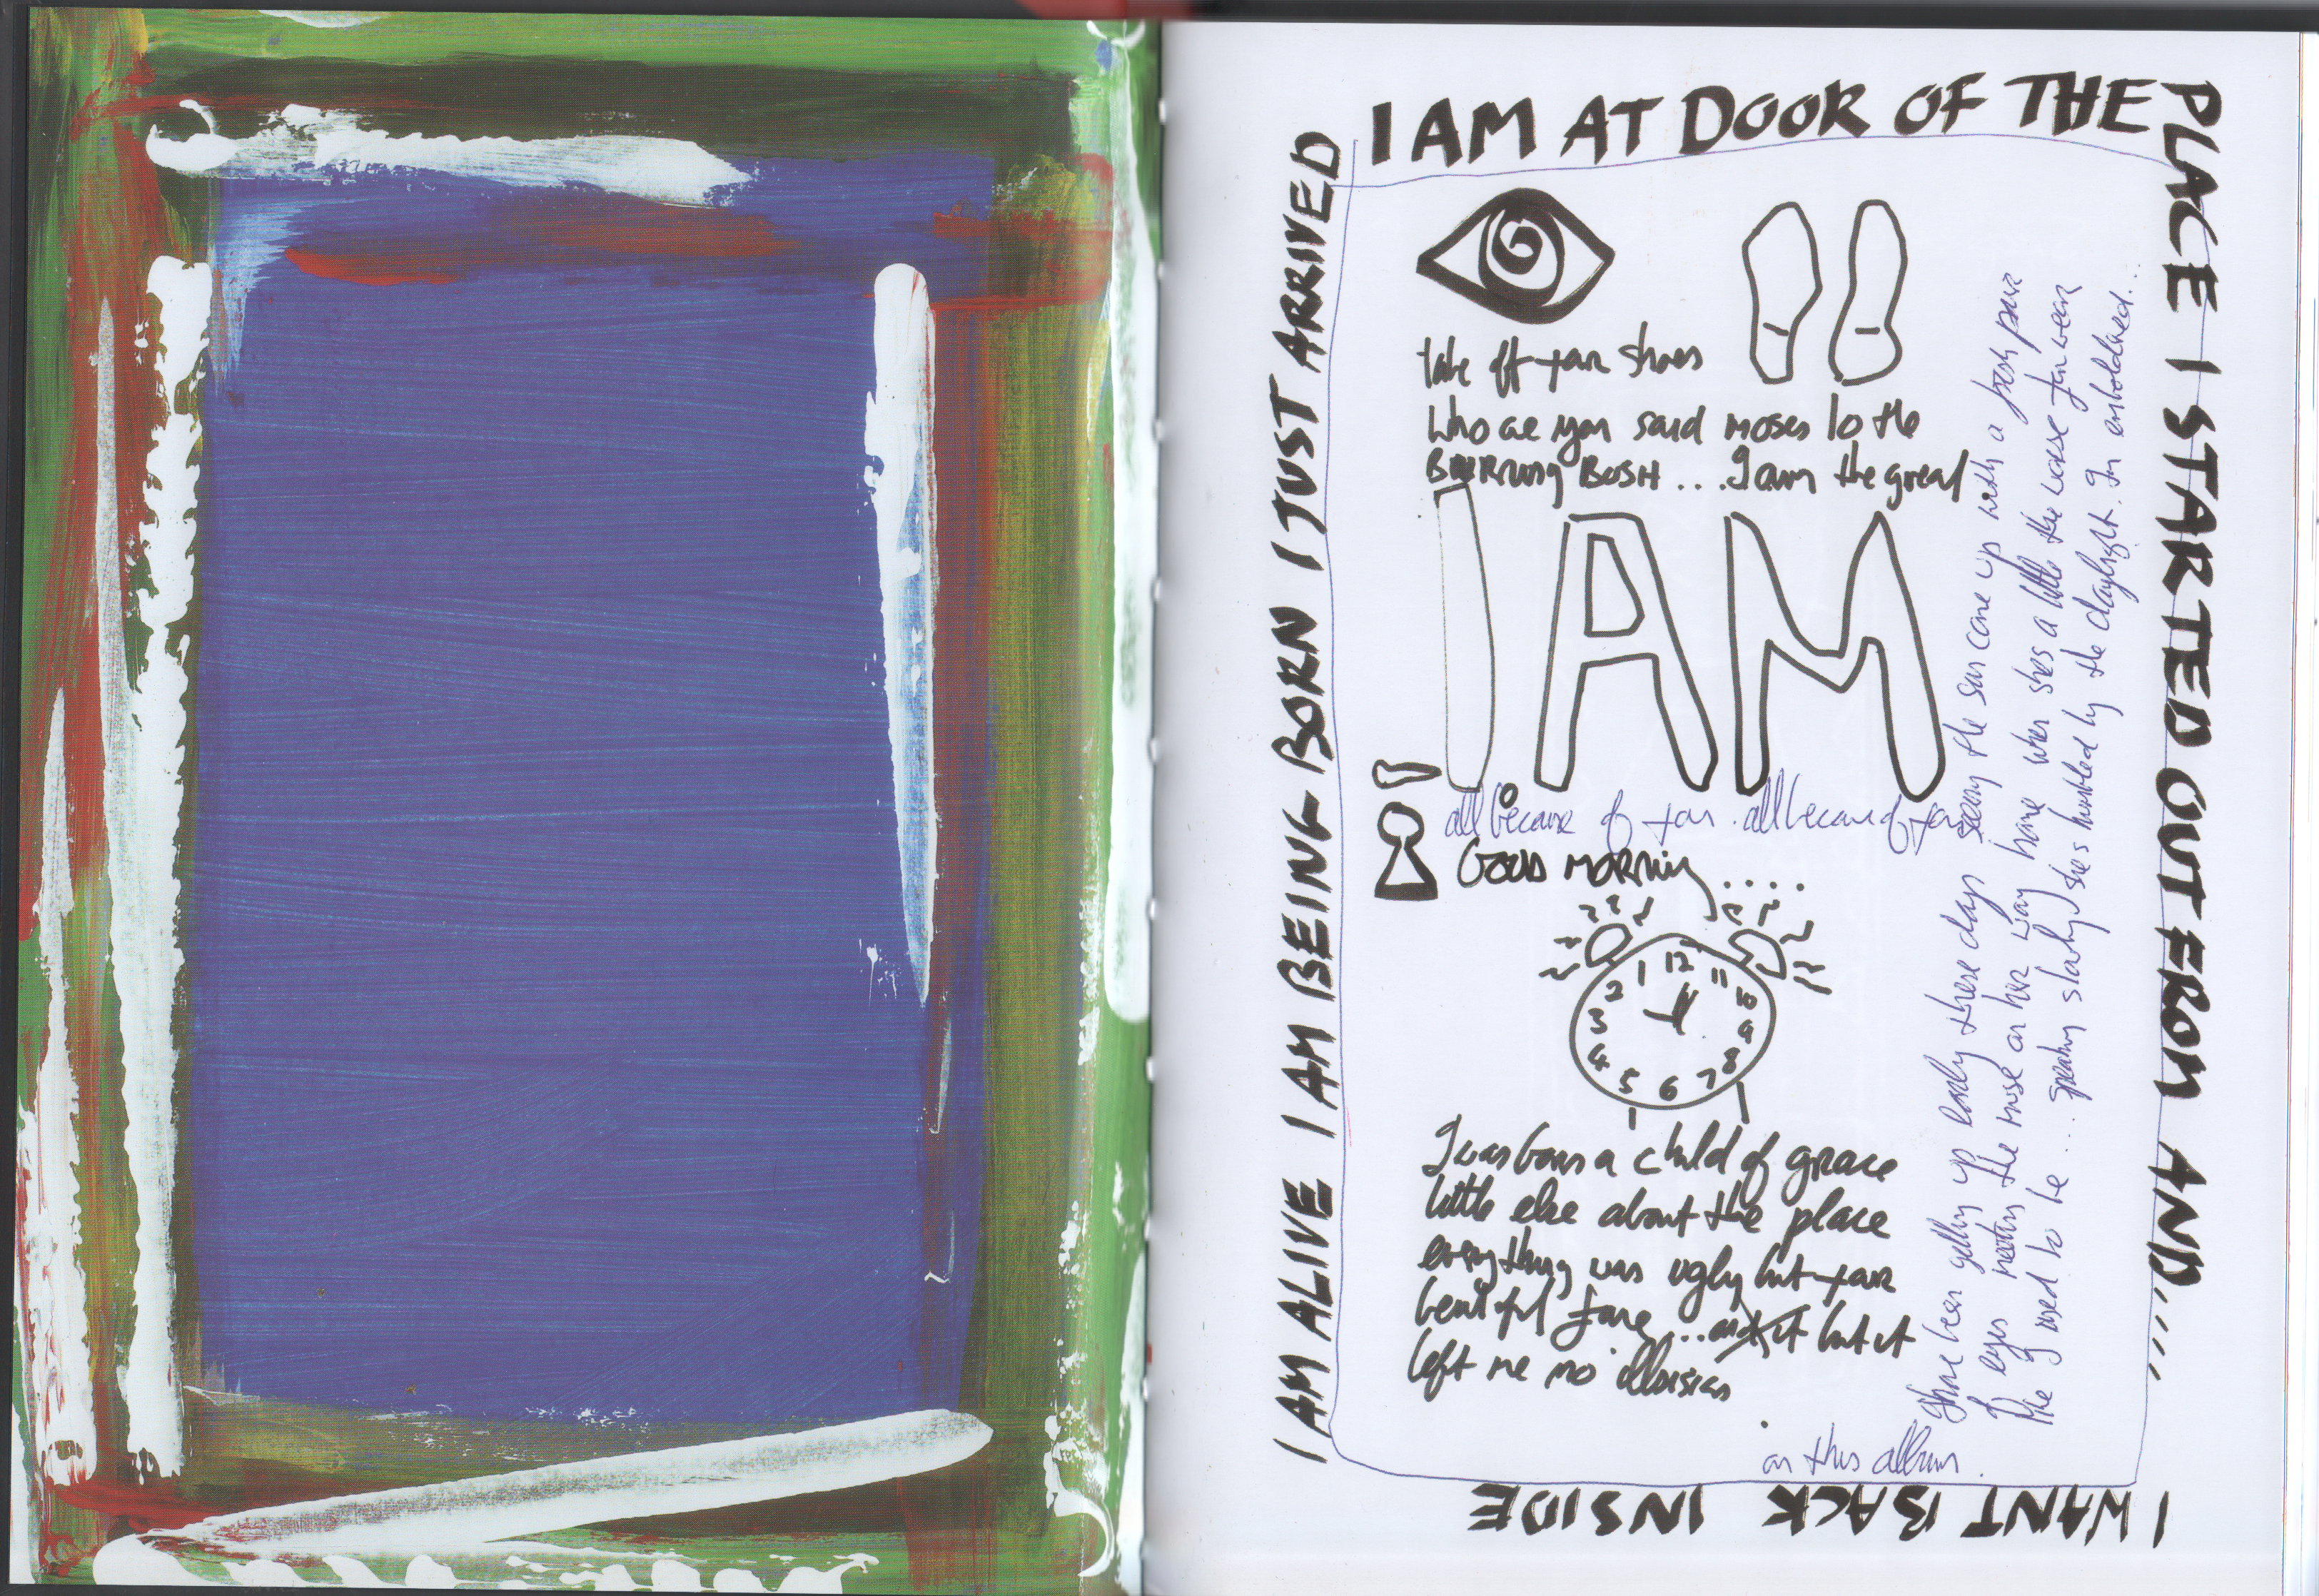 I AM AT DOOR OF THE
PLACE I STARTED OUT FROM AND.....
I WANT BACK INSIDE
I AM ALIVE I AM BEING BORN I JUST ARRIVED
take off your shoes
Who are you said moses to the
BURRNing BUSH ... I am the great
I AM
all because of you . all because of you
GOOD MORNING ....
12
11
10
9
8
7
6
5
4
3
2
1
I was born a child of grace
little else about the place
everything was ugly but your
beautiful face ... and it but it
left me no illusions
I have been getting up early these days seeing the sun come up with a fresh pair
of eyes meeting the muse on her way home when shes a little the worse for wear
like I used to be ... speaking slowly shes humbled by the daylight. I'm emboldened...
on this album.